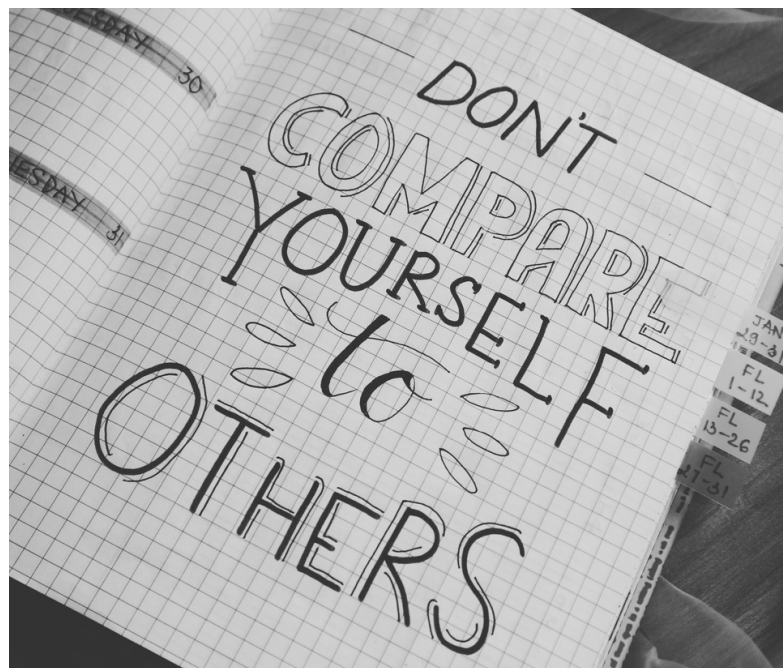 UESDAY 30
ESDAY 31
DON'T
COMPARE
YOURSELF
to
OTHERS
JAN
29-3
FL
1-12
FL
13-26
FL
27-31